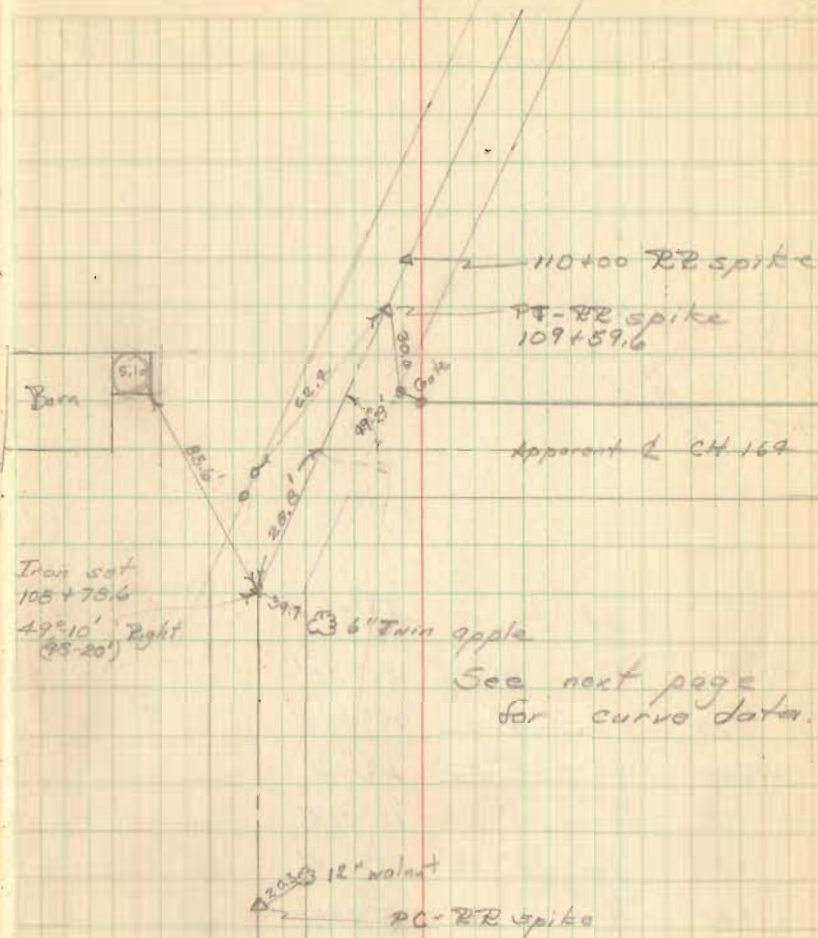 110+00 RR spike
PT-RR spike
109+59.6
30.0
Gate
Barn
85.6'
Apparent ℄ CH 169
28.8'
Iron set
108+78.6
49°-10' Right
(98-20')
39.7
6" Twin apple
See next page
for curve data.
20.3
12" walnut
PC-RR spike